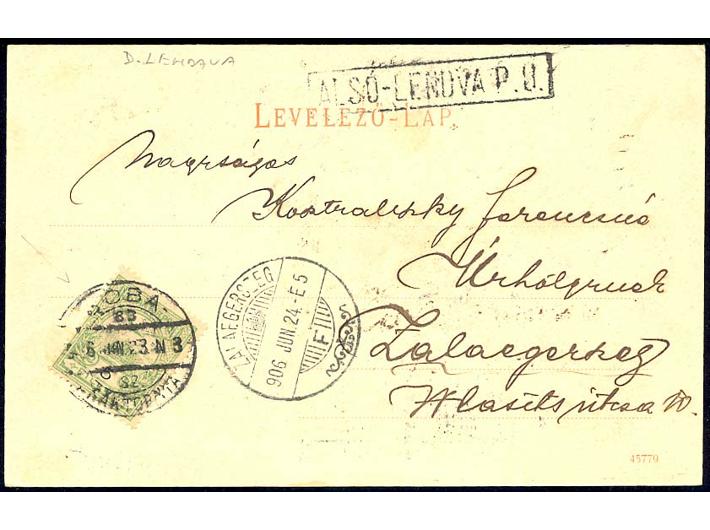 D. LENDAVA
ALSÓ-LENDVA P. U.
LEVELEZŐ-LAP.
Nagyságos
Ferencné
Úrhölgynek
Zalaegerszeg
Wlasits utcza 10.
ZALAEGERSZEG
906 JUN. 24. -E 5
F
OBA
CSÁKTORNYA
45779